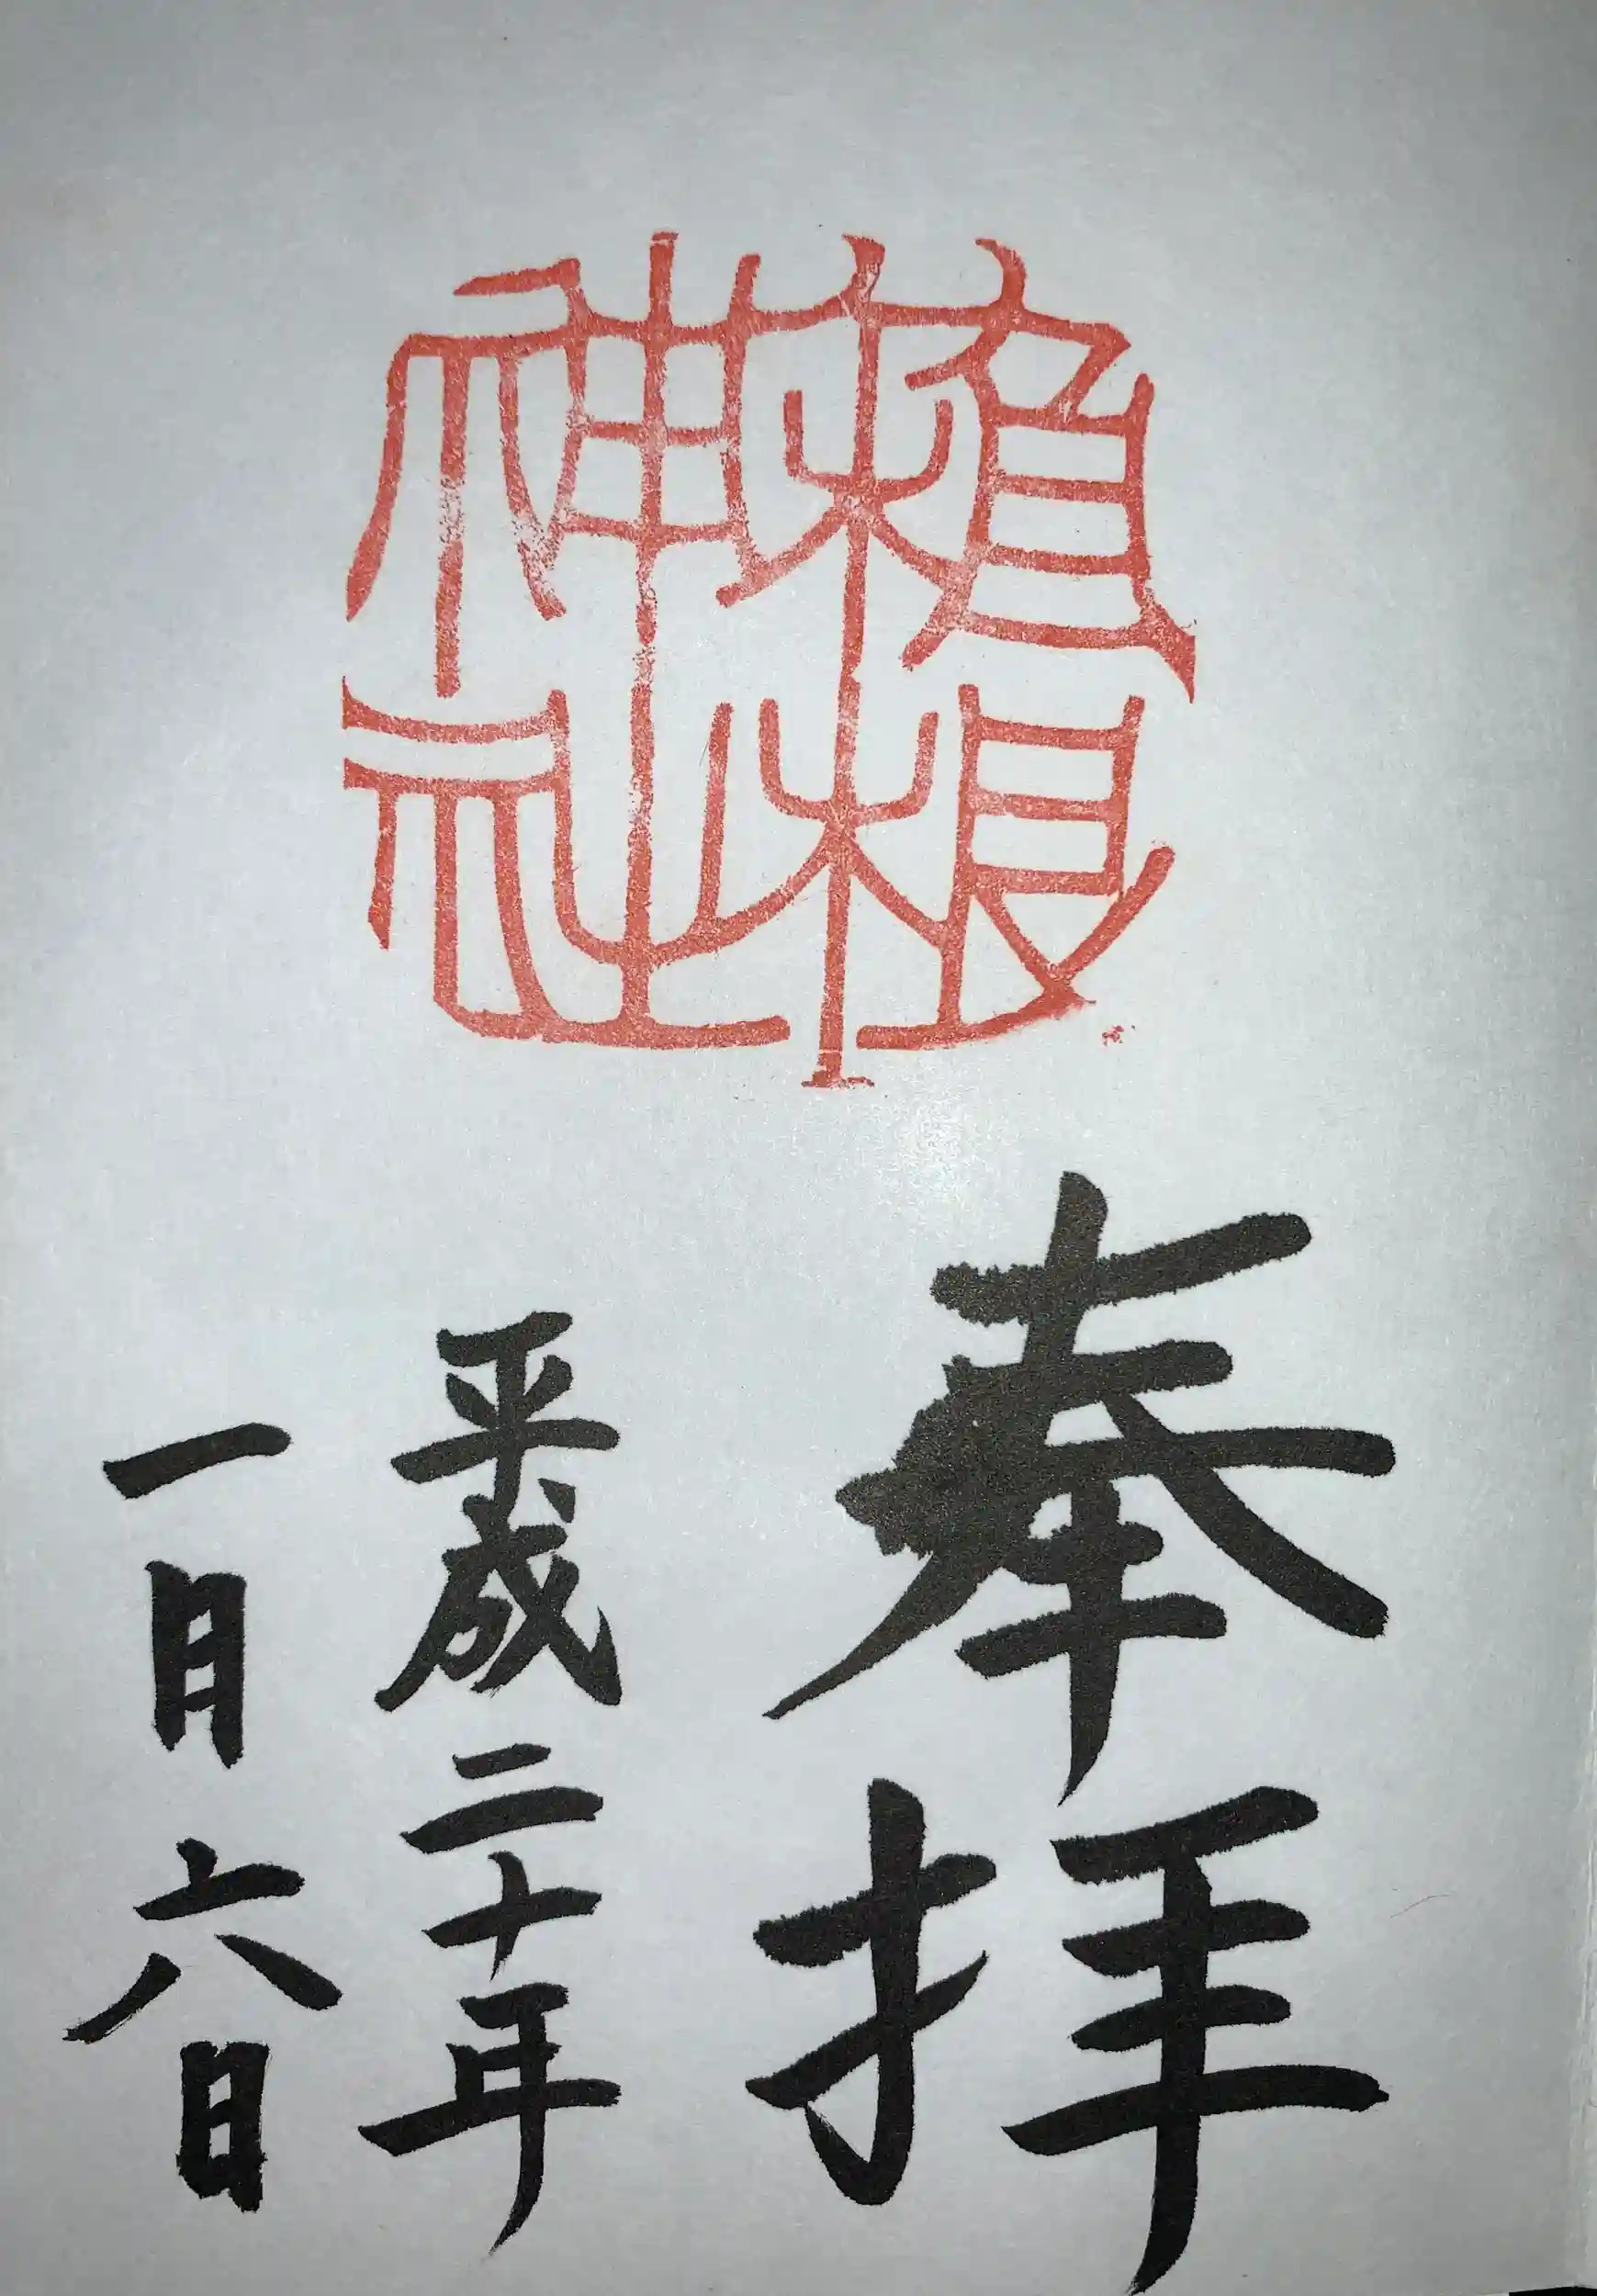 箱根
神社
奉拝
平成二十年
一月六日